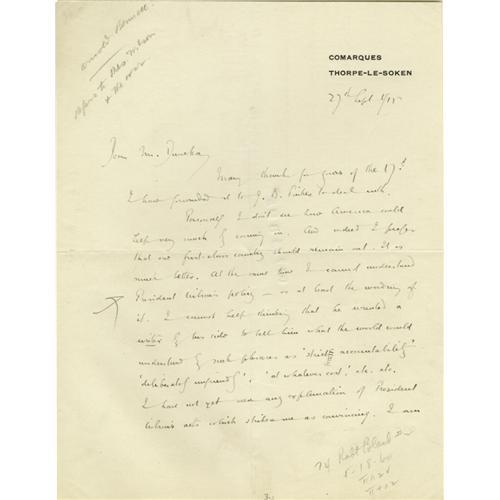 Arnold Bennett
refers to Pres Wilson
& the war
COMARQUES
THORPE-LE-SOKEN
27th Sept 1915
Dear Mr. Duneka,
Many thanks for yours of the 17th
I have forwarded it to J. B. Pinker to deal with.
Personally I don't see how America could
help very much by coming in. And indeed I prefer
that one first-class country should remain out. It is
much better. At the same time I cannot understand
President Wilson's policy — or at least the wording of
it. I cannot help thinking that he wanted a
writer by his side to tell him what the world would
understand by such phrases as 'strict accountability'
'deliberately unfriendly', 'at whatever cost', etc. etc.
I have not yet seen any explanation of President
Wilson's acts which strikes me as convincing. I am
74
5-18-60